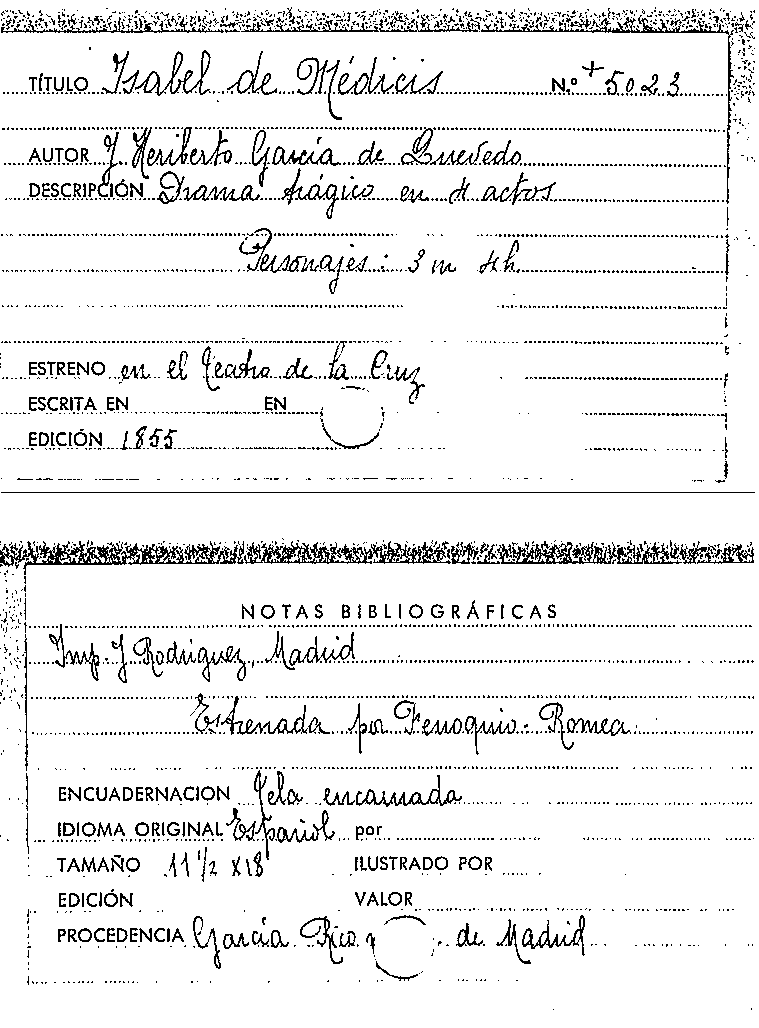 TÍTULO Isabel de Médicis N.º +5023
AUTOR J. Heriberto García de Quevedo
DESCRIPCIÓN Drama trágico en 4 actos
Personajes: 3 m 4 h.
ESTRENO en el Teatro de la Cruz
ESCRITA EN EN
EDICIÓN 1855
NOTAS BIBLIOGRÁFICAS
Imp. J. Rodriguez, Madrid
Estrenada por Fenoquio-Romea
ENCUADERNACION Tela encarnada
IDIOMA ORIGINAL Español por
TAMAÑO 11 1/2 x 18 ILUSTRADO POR
EDICIÓN VALOR
PROCEDENCIA García Rico y de Madrid